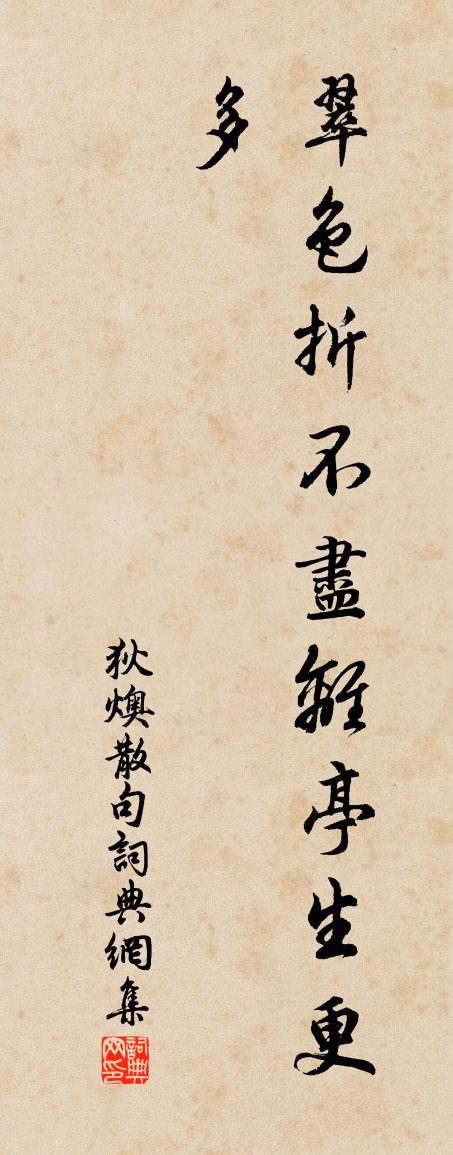 翠色折不盡離亭生更
多
狄燠散句詞典網集
詞典網印